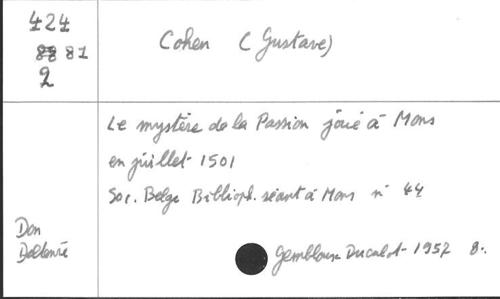 424
88 81
2
Cohen (Gustave)
Le mystère de la Passion joué à Mons
en juillet 1501
Soc. Belge Biblioph. séant à Mons n° 44
Don
Delterre
Gembloux Duculot 1957 8°.